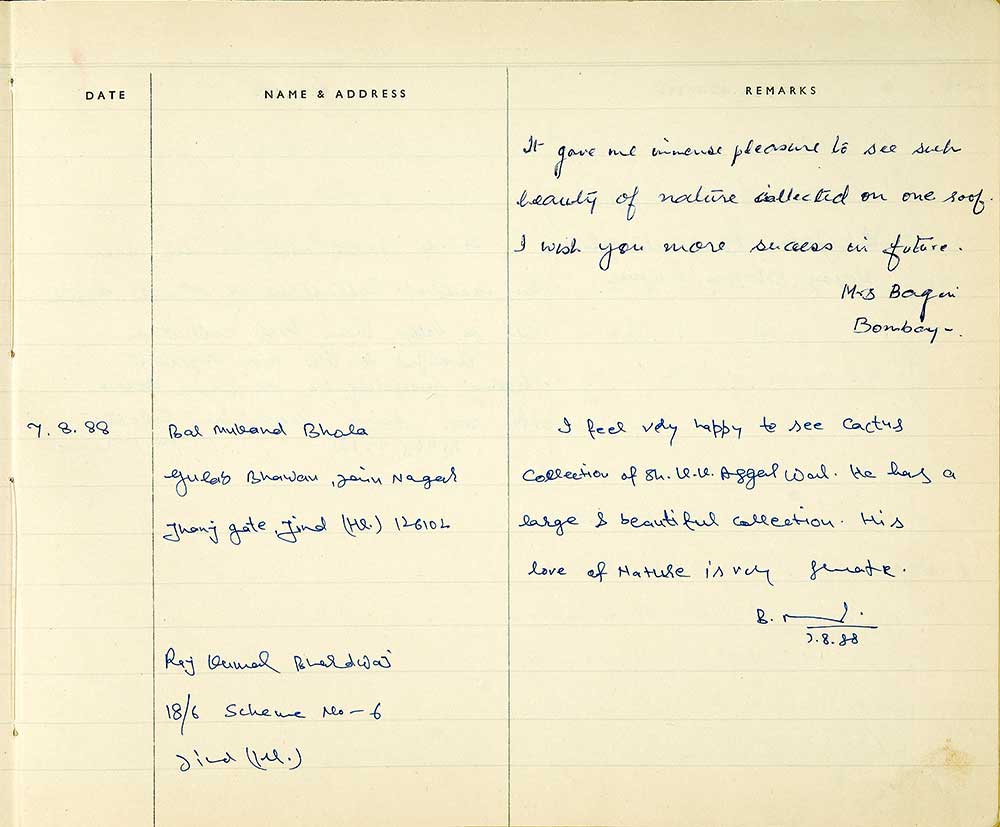 DATE
NAME & ADDRESS
REMARKS
It gave me immense pleasure to see such
beauty of nature collected on one roof.
I wish you more success in future.
Mrs Bagri
Bombay-.
7.8.88
Bal Mukand Bhola
Gulab Bhawan, Jain Nagar
Jhanj gate, Jind (Hr.) 126102
I feel very happy to see Cactus
Collection of Sh. K.K. Aggarwal. He has a
large & beautiful collection. His
love of Nature is very
B.
7.8.88
Raj Kumar Bhardwaj
18/6 Scheme No-6
Jind (Hr.)